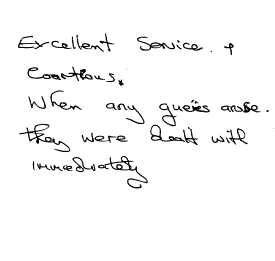 Excellent Service. +
Courtious.
When any queries arose.
they were dealt with
immediately